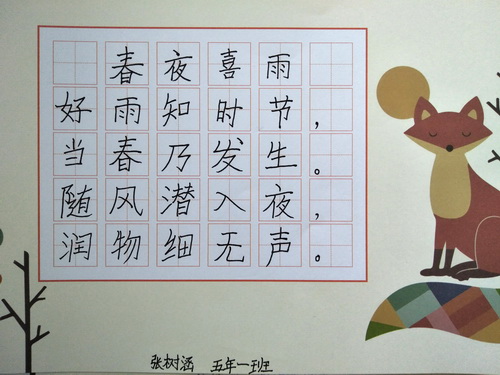 春夜喜雨
好雨知时节，
当春乃发生。
随风潜入夜，
润物细无声。
张树涵 五年一班